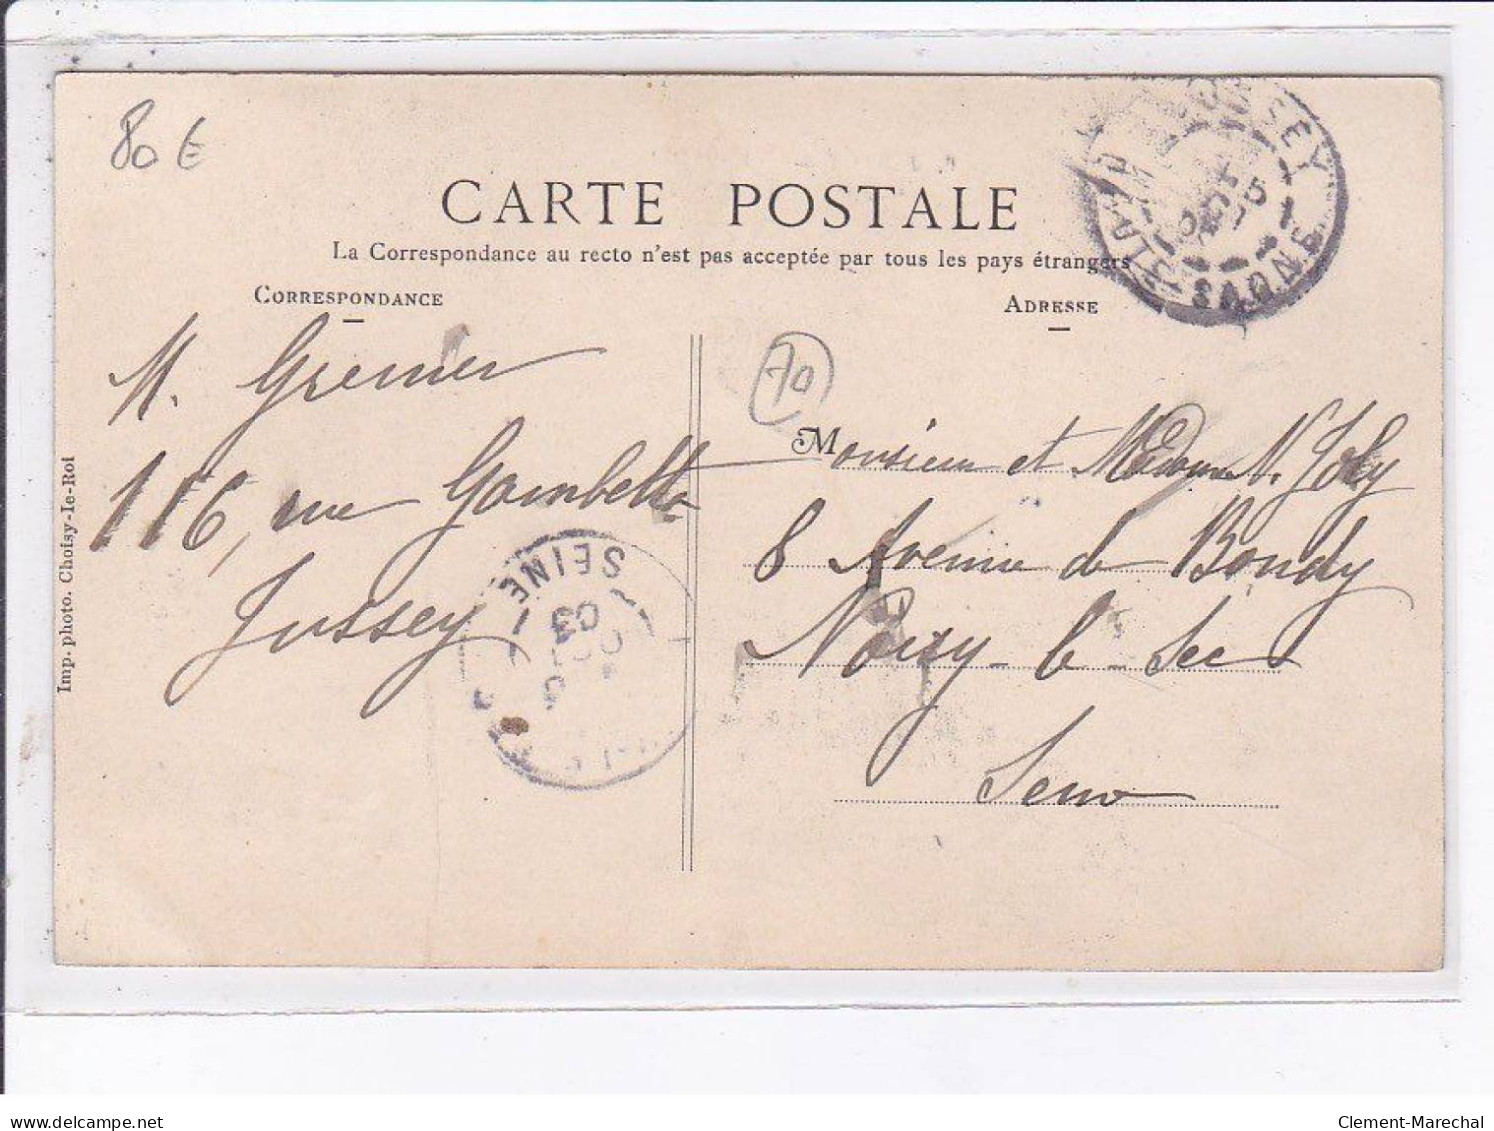 80 €
CARTE POSTALE
La Correspondance au recto n'est pas acceptée par tous les pays étrangers
CORRESPONDANCE
ADRESSE
JUSSEY
Hte SAONE
M. Grenier
116, rue Gambetta
Jussey
SEINE
03
70
Monsieur et Madame N. Joly
8 Avenue de Bondy
Noisy-le-Sec
Seine
Imp. photo. Choisy-le-Roi
delcampe.net
Clement-Marechal